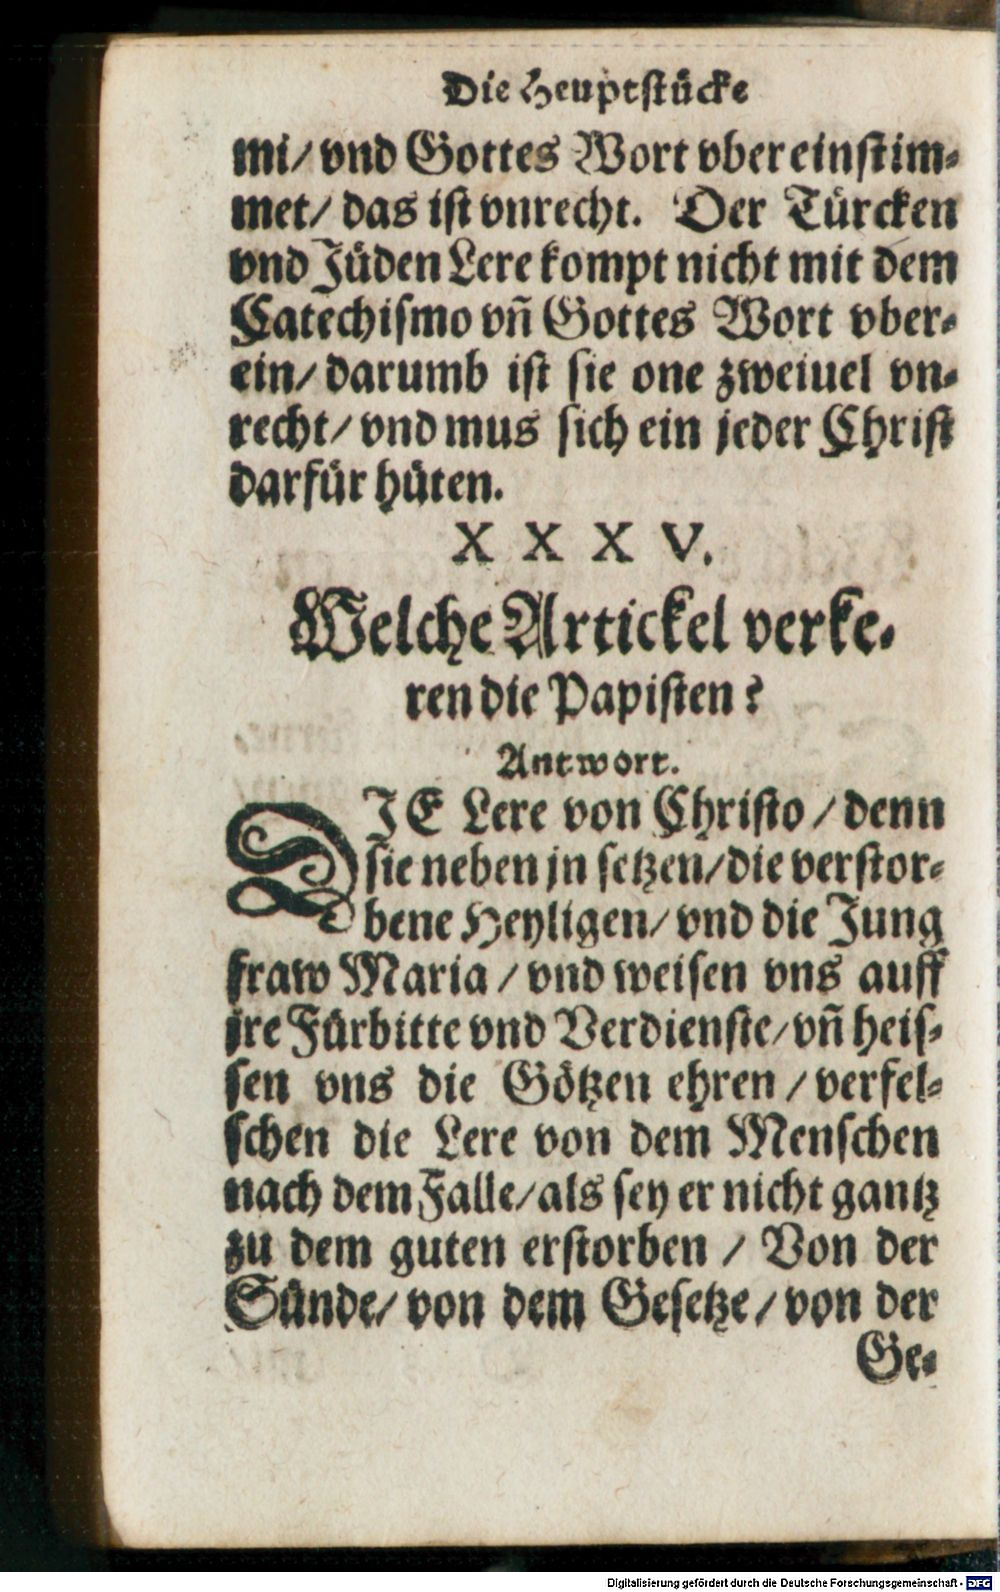 Die Heuptstücke
mi/ vnd Gottes Wort vbereinstim⸗
met/ das ist vnrecht. Der Türcken
vnd Jüden Lere kompt nicht mit dem
Catechismo vñ Gottes Wort vber⸗
ein/ darumb ist sie one zweiuel vn⸗
recht/ vnd mus sich ein jeder Christ
darfür hüten.
X X X V.
Welche Artickel verke⸗
ren die Papisten?
Antwort.
DJE Lere von Christo / denn
sie neben jn setzen/ die verstor⸗
bene Heyligen/ vnd die Jung
fraw Maria / vnd weisen vns auff
jre Fürbitte vnd Verdienste/ vñ heis⸗
sen vns die Götzen ehren / verfel⸗
schen die Lere von dem Menschen
nach dem Falle/ als sey er nicht gantz
zu dem guten erstorben / Von der
Sünde/ von dem Gesetze/ von der
Ge⸗
Digitalisierung gefördert durch die Deutsche Forschungsgemeinschaft - DFG